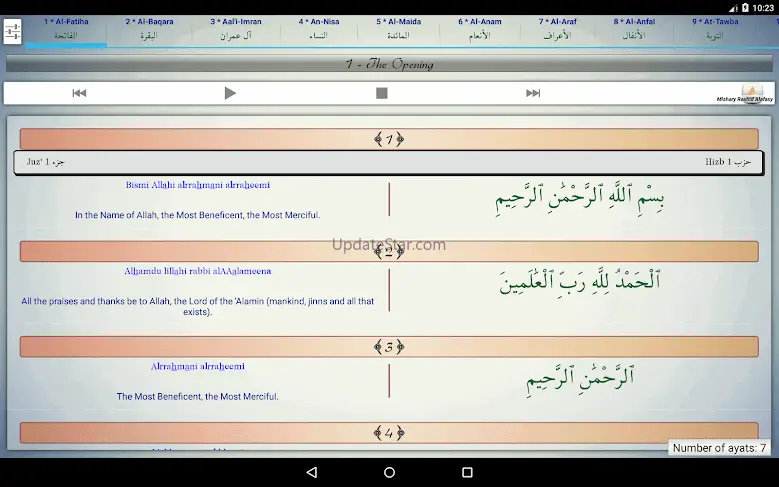 10:23
1 * Al-Fatiha
الفاتحة
2 * Al-Baqara
البقرة
3 * Aal'i-Imran
آل عمران
4 * An-Nisa
النساء
5 * Al-Maida
المائدة
6 * Al-Anam
الأنعام
7 * Al-Araf
الأعراف
8 * Al-Anfal
الأنفال
9 * At-Tawba
التوبة
1 - The Opening
Mishary Rashid Alafasy
﴾1﴿
Juz' 1 جزء
Hizb 1 حزب
Bismi Allahi alrrahmani alrraheemi
In the Name of Allah, the Most Beneficent, the Most Merciful.
بِسْمِ ٱللَّهِ ٱلرَّحْمَٰنِ ٱلرَّحِيمِ
UpdateStar.com
﴾2﴿
Alhamdu lillahi rabbi alAAalameena
All the praises and thanks be to Allah, the Lord of the 'Alamin (mankind, jinns and all that
exists).
ٱلْحَمْدُ لِلَّهِ رَبِّ ٱلْعَٰلَمِينَ
﴾3﴿
Alrrahmani alrraheemi
The Most Beneficent, the Most Merciful.
ٱلرَّحْمَٰنِ ٱلرَّحِيمِ
﴾4﴿
Number of ayats: 7